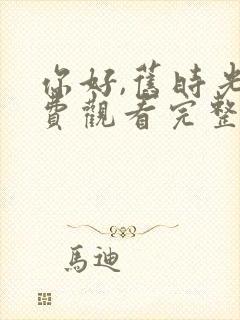 你好,舊時光
費觀看完整
馬迪